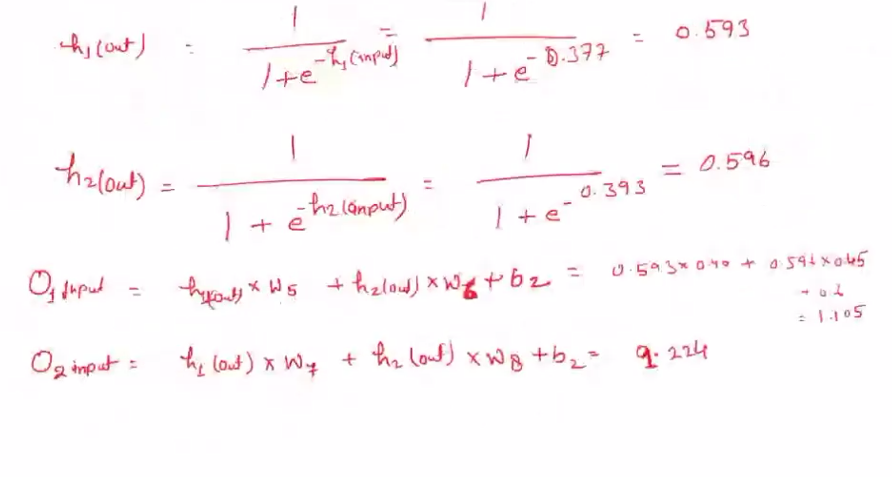 h1(out) = 1 / 1+e^-h1(input) = 1 / 1+e^-0.377 = 0.593
h2(out) = 1 / 1+e^-h2(input) = 1 / 1+e^-0.393 = 0.596
O1 input = h1(out) × W5 + h2(out) × W6 + b2 = 0.593×0.40 + 0.596×0.45
= 1.105
O2 input = h1(out) × W7 + h2(out) × W8 + b2 = 9.224